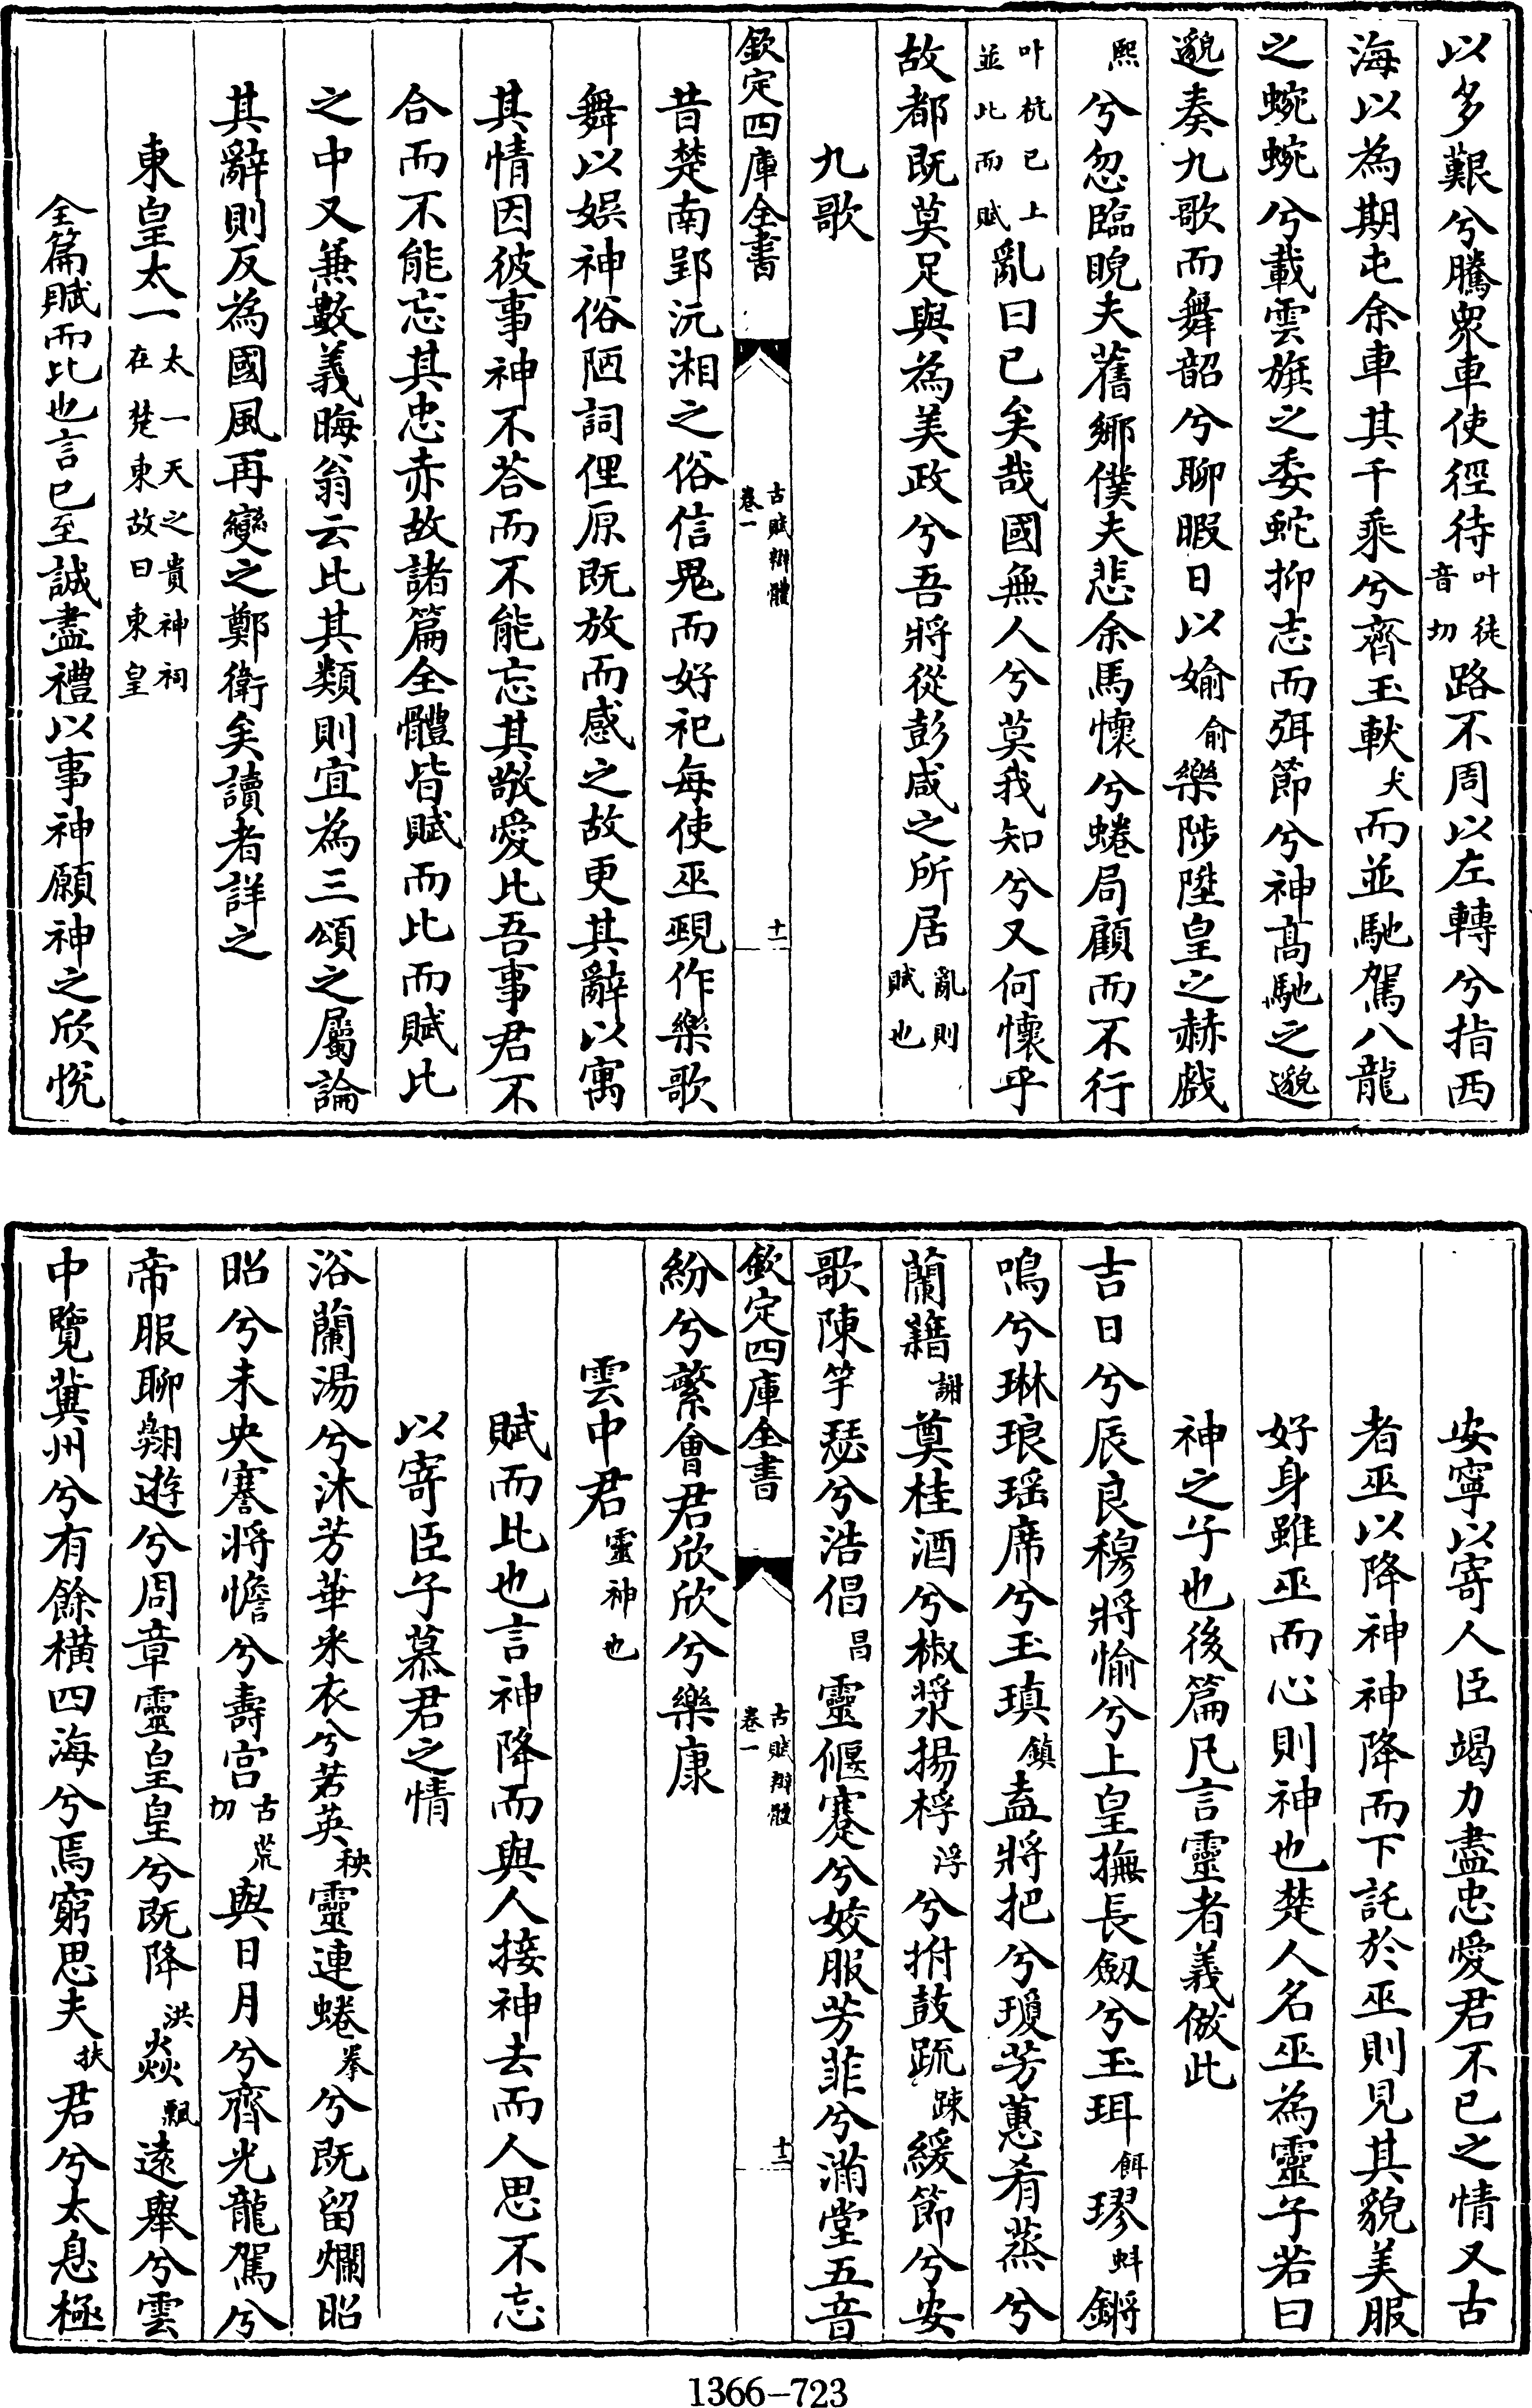 以多艱兮騰眾車使徑待叶徒音切路不周以左轉兮指西
海以為期屯余車其千乘兮齊玉軑大而並馳駕八龍
之蜿蜿兮載雲旗之委蛇抑志而弭節兮神髙馳之邈
邈奏九歌而舞韶兮聊暇日以婾俞樂陟陞皇之赫戯
熙兮忽臨睨夫舊鄉僕夫悲余馬懷兮蜷局顧而不行
叶杭已上並比而賦亂曰已矣哉國無人兮莫我知兮又何懷乎
故都既莫足與為美政兮吾將從彭咸之所居亂則賦也
九歌
欽定四庫全書
古賦辯體
卷一
十一
昔楚南郢沅湘之俗信鬼而好祀每使巫覡作樂歌
舞以娱神俗陋詞俚原既放而感之故更其辭以寓
其情因彼事神不答而不能忘其敬愛比吾事君不
合而不能忘其忠赤故諸篇全體皆賦而比而賦比
之中又兼數義晦翁云此其類則宜為三頌之屬論
其辭則反為國風再變之鄭衛矣讀者詳之
東皇太一太一天之貴神祠在楚東故曰東皇
全篇賦而比也言已至誠盡禮以事神願神之欣悅
安寧以寄人臣竭力盡忠愛君不已之情又古
者巫以降神神降而下託於巫則見其貌美服
好身雖巫而心則神也楚人名巫為靈子若曰
神之子也後篇凡言靈者義倣此
吉日兮辰良穆將愉兮上皇撫長劔兮玉珥餌璆蚪鏘
鳴兮琳琅瑶席兮玉瑱鎮盍將把兮瓊芳蕙肴蒸兮
蘭籍謝奠桂酒兮椒漿揚桴浮兮拊鼓疏踈緩節兮安
歌陳竽瑟兮浩倡昌靈偃蹇兮姣服芳菲兮滿堂五音
欽定四庫全書
古賦辯體
卷一
十二
紛兮繁會君欣欣兮樂康
雲中君靈神也
賦而比也言神降而與人接神去而人思不忘
以寄臣子慕君之情
浴蘭湯兮沐芳華采衣兮若英秧靈連蜷拳兮既留爛昭
昭兮未央蹇將憺兮壽宮古荒切與日月兮齊光龍駕兮
帝服聊翱遊兮周章靈皇皇兮既降洪猋飄遠舉兮雲
中覽冀州兮有餘橫四海兮焉窮思夫扶君兮太息極
1366-723